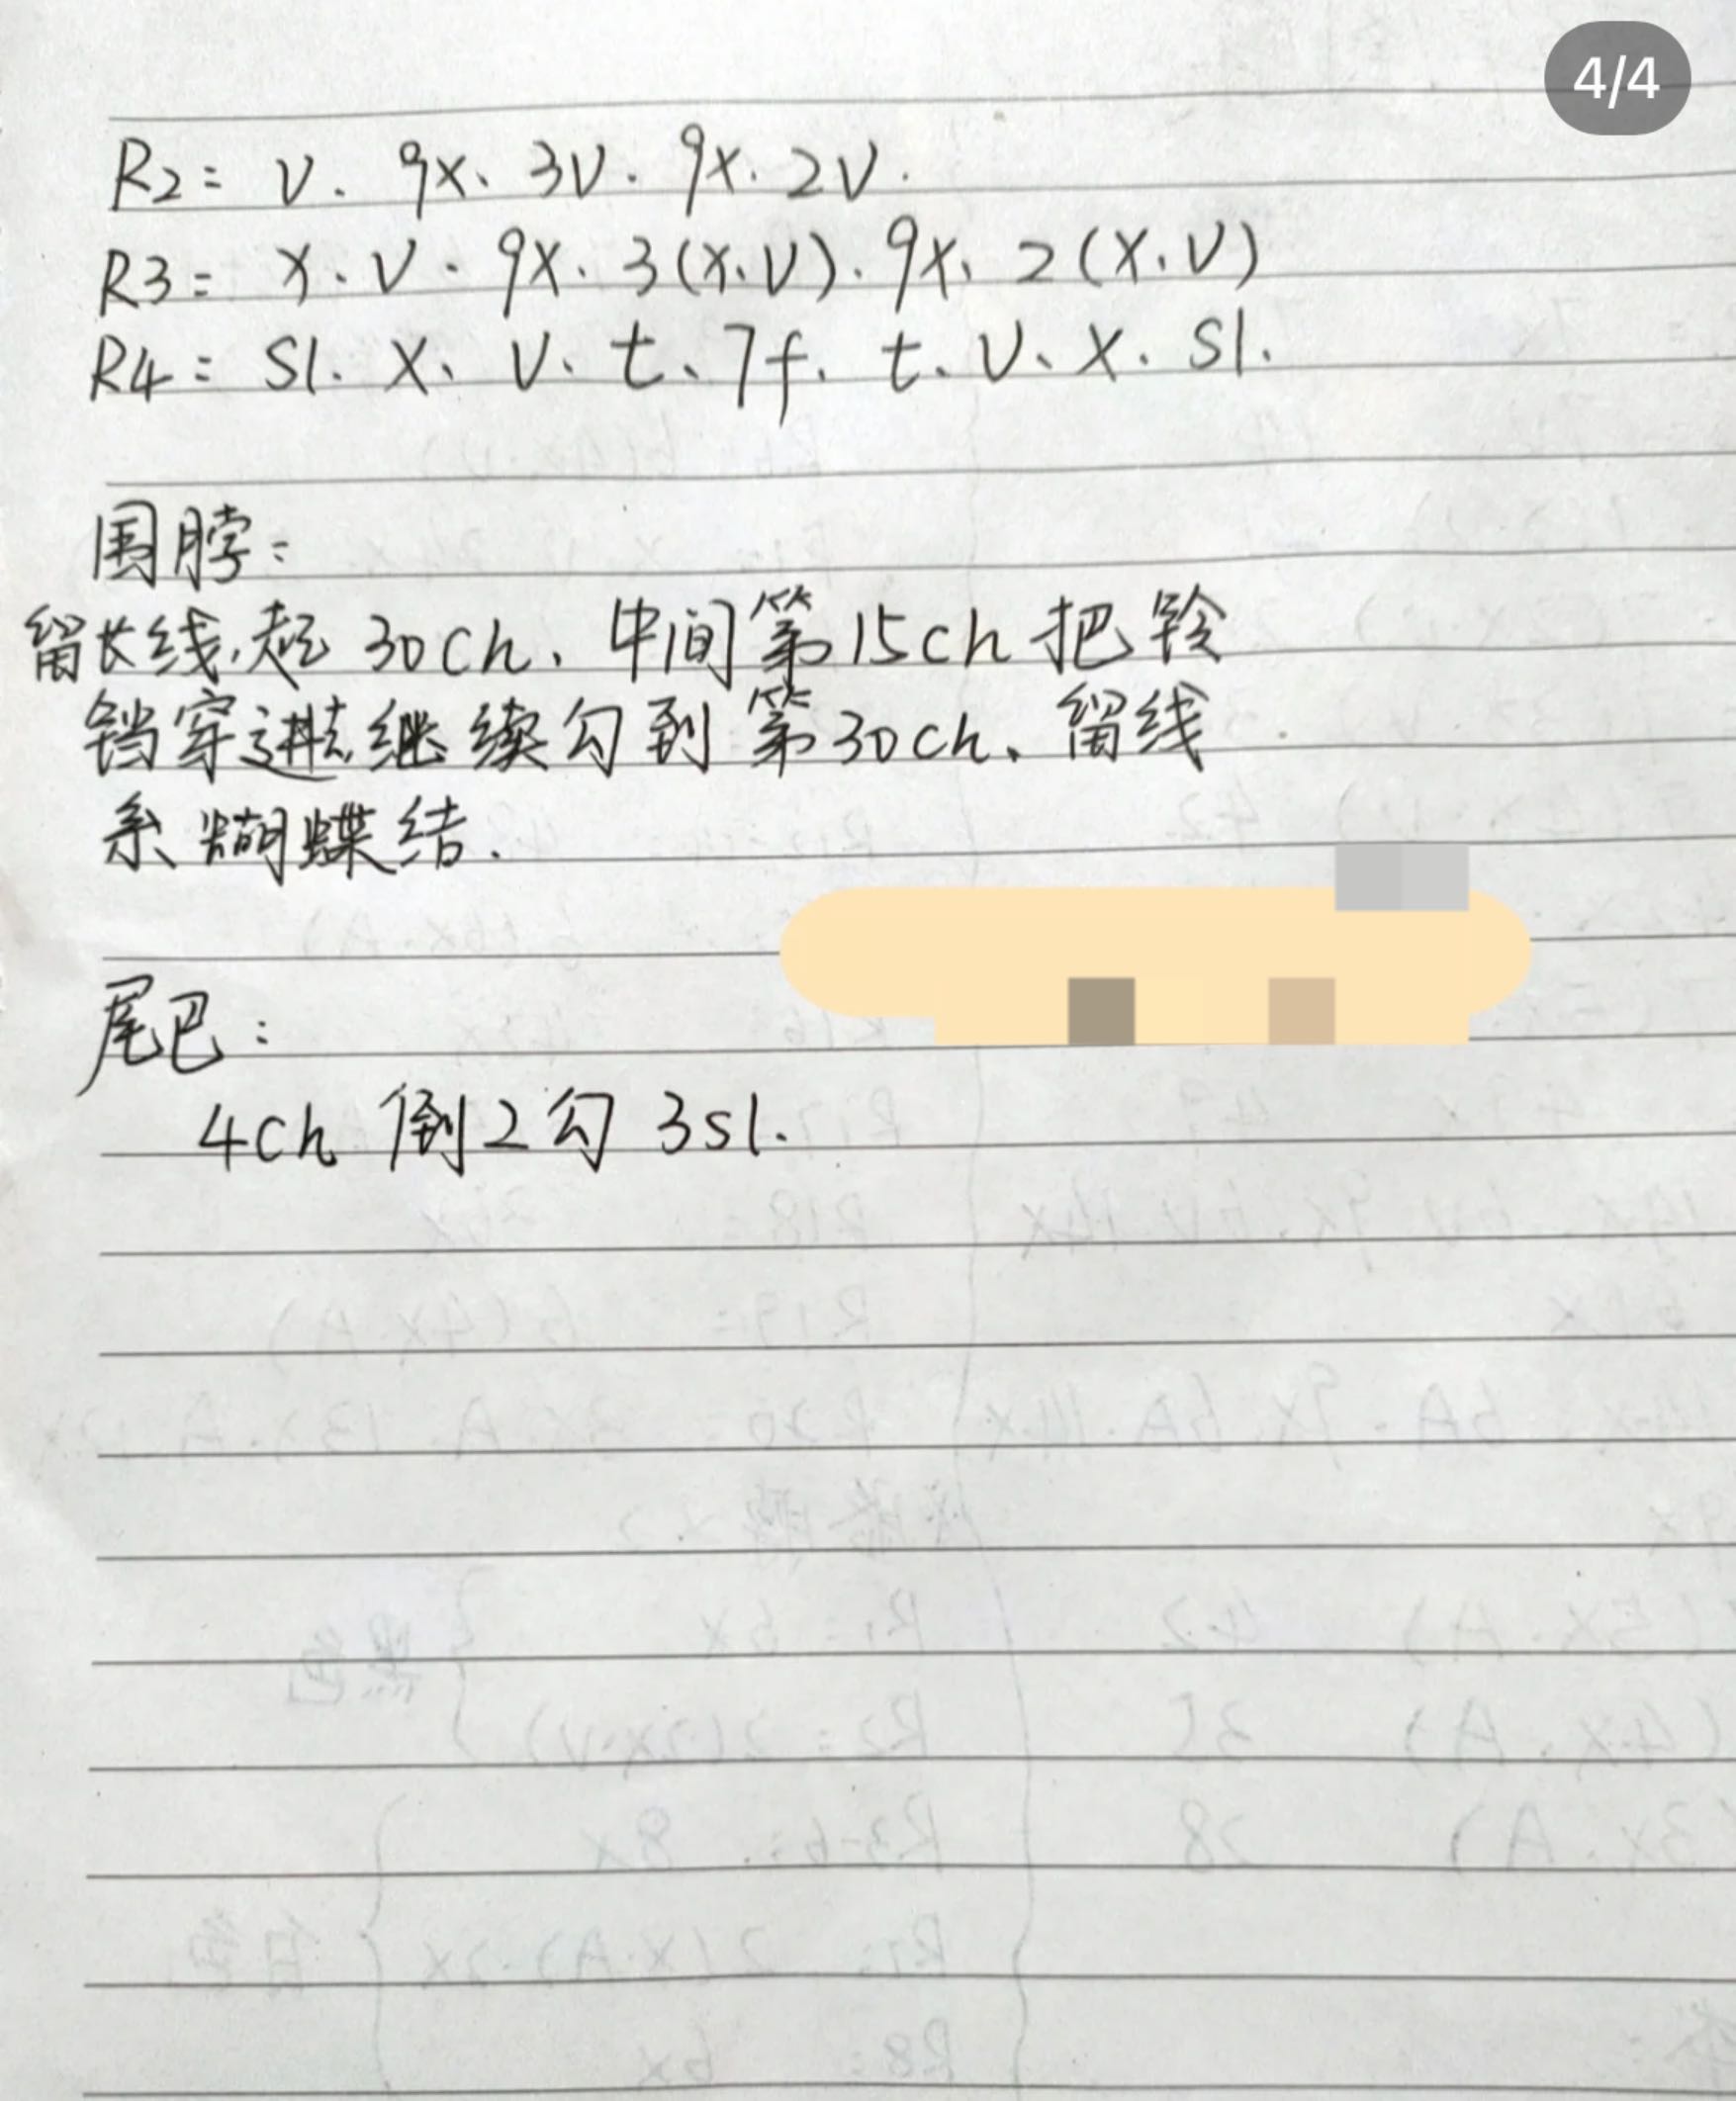 4/4
R2= V. 9X、3V. 9X. 2V.
R3= X.V. 9X. 3(X.V). 9X、2(X.V)
R4= Sl. X、V. t、7f. t.V、X. Sl.
围脖:
留长线,起 30ch、中间第15ch把铃
铛穿进去继续勾到第30ch、留线
系蝴蝶结.
尾巴:
4ch 倒2勾 3sl.